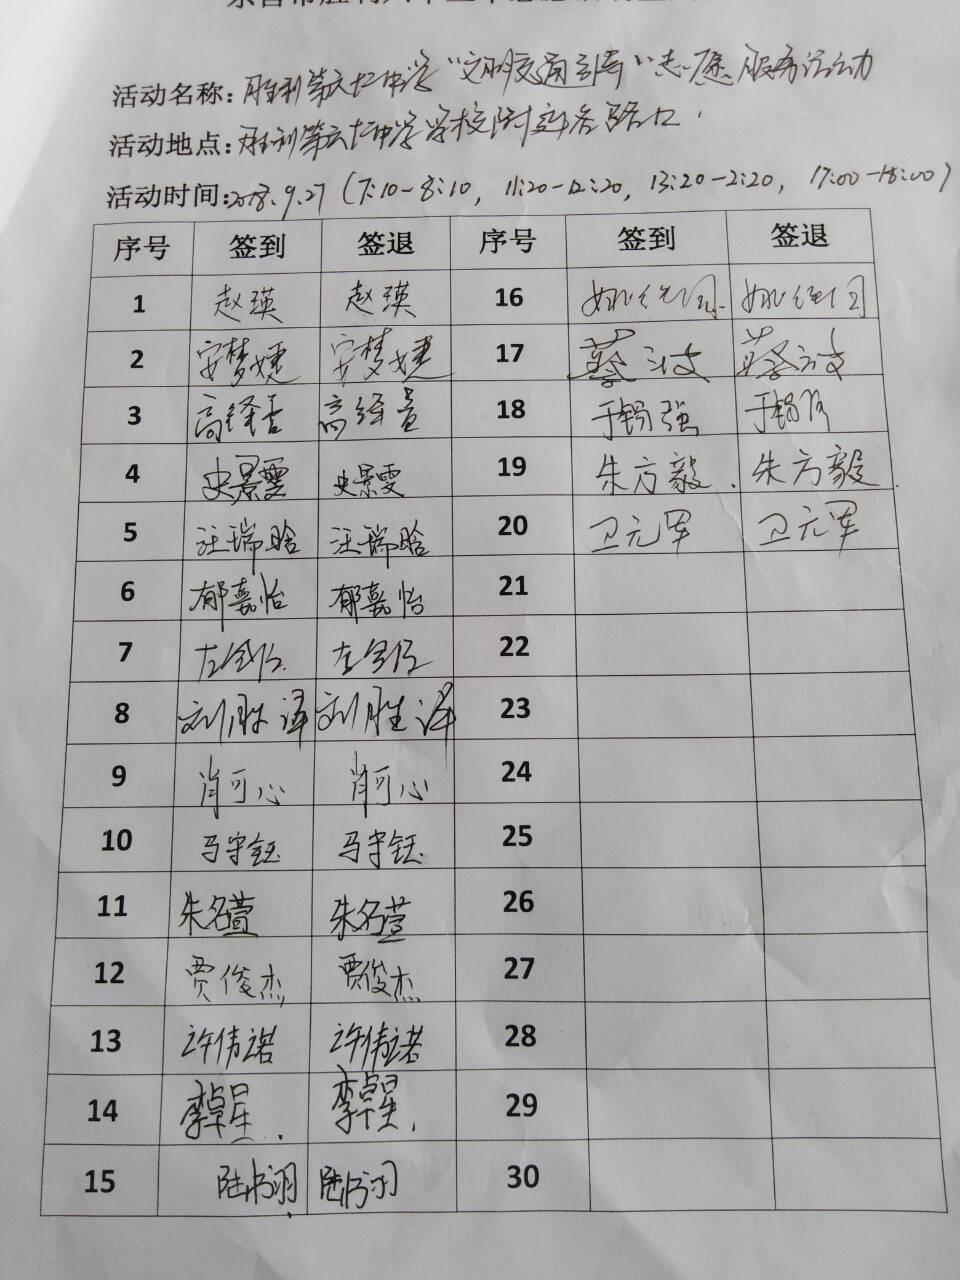 活动名称:胜利第六十二中学“文明交通引导”志愿服务活动
活动地点:胜利第六十二中学学校附近各路口
活动时间:2018.9.27(7:10-8:10, 11:20-12:20, 13:20-2:20, 17:00-18:00)
序号 签到 签退 序号 签到 签退
1 赵瑛 赵瑛 16
2 安梦婕 安梦婕 17 蔡
3 高绎 高绎 18 于锡强 于锡
4 史景雯 史景雯 19 朱方毅 朱方毅
5 汪瑞晗 汪瑞晗 20 卫元军 卫元军
6 郁嘉怡 郁嘉怡 21
7 左 左 22
8 刘胜泽 刘胜泽 23
9 肖可心 肖可心 24
10 马宇钰 马宇钰 25
11 朱名萱 朱名萱 26
12 贾俊杰 贾俊杰 27
13 许倩诺 许倩诺 28
14 李卓星 李卓星 29
15 陆书羽 陆书羽 30